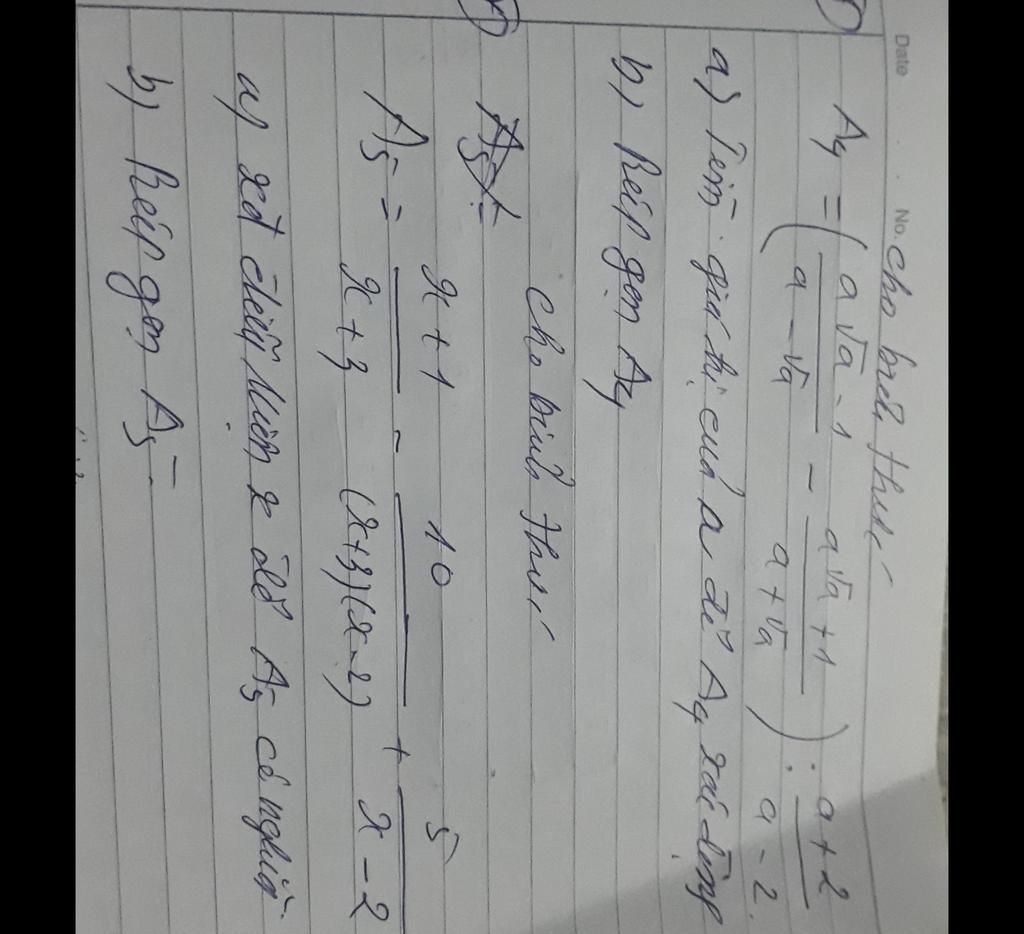 Date No.
cho biểu thức
A₄ = ( (a√a - 1)/(a - √a) - (a√a + 1)/(a + √a) ) : (a + 2)/(a - 2)
a) Tìm giá trị của a để A₄ xác định
b) Rút gọn A₄
Cho biểu thức
A₅ =
A₅ = (x + 1)/(x + 3) - 10/((x+3)(x-2)) + 5/(x - 2)
a) xđ điều kiện x để A₅ có nghĩa
b) Rút gọn A₅